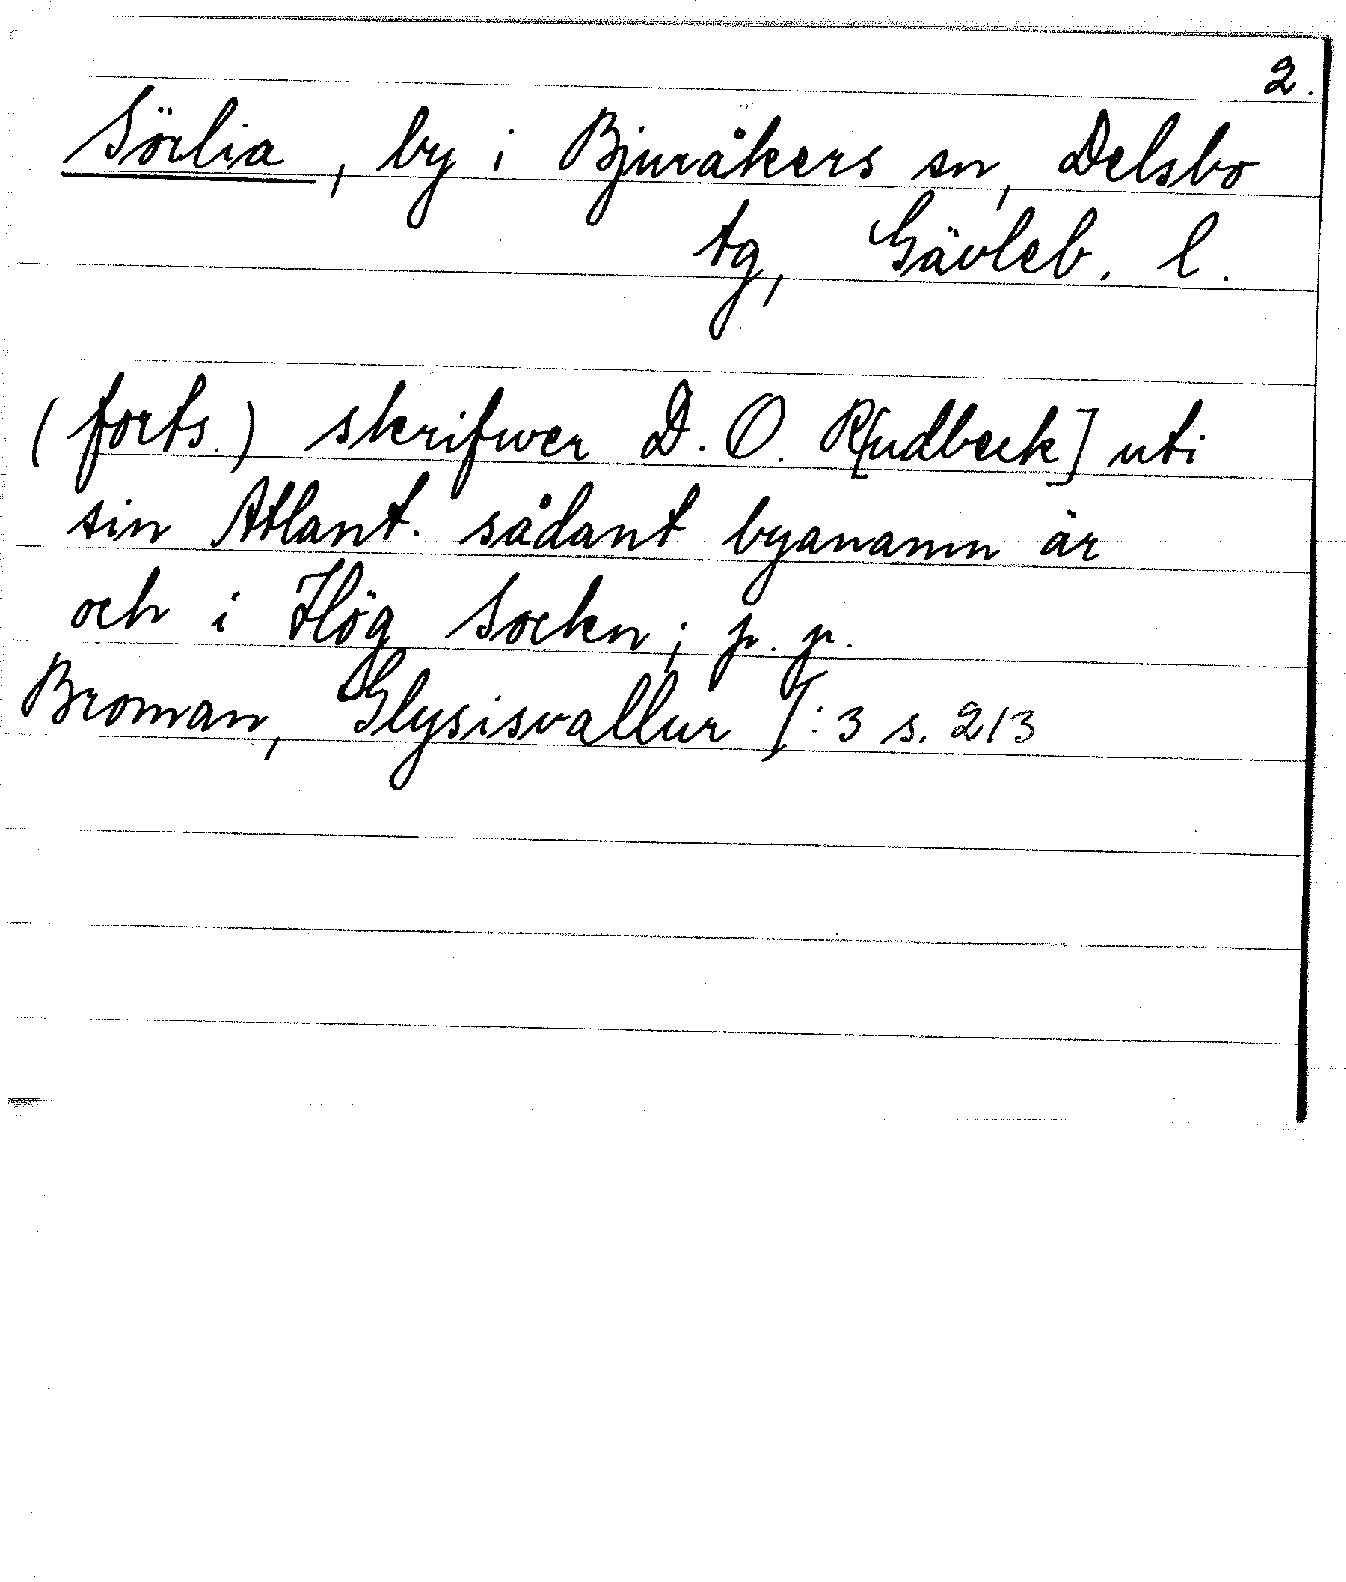 2.
Sörlia, by i Bjuråkers sn, Delsbo
tg, Gävleb. l.
(forts.) skrifwer D. O. R[udbeck] uti
sin Atlant. sådant byanamn är
och i Hög Sockn; p. p.
Broman, Glysisvallur I:3 s. 213